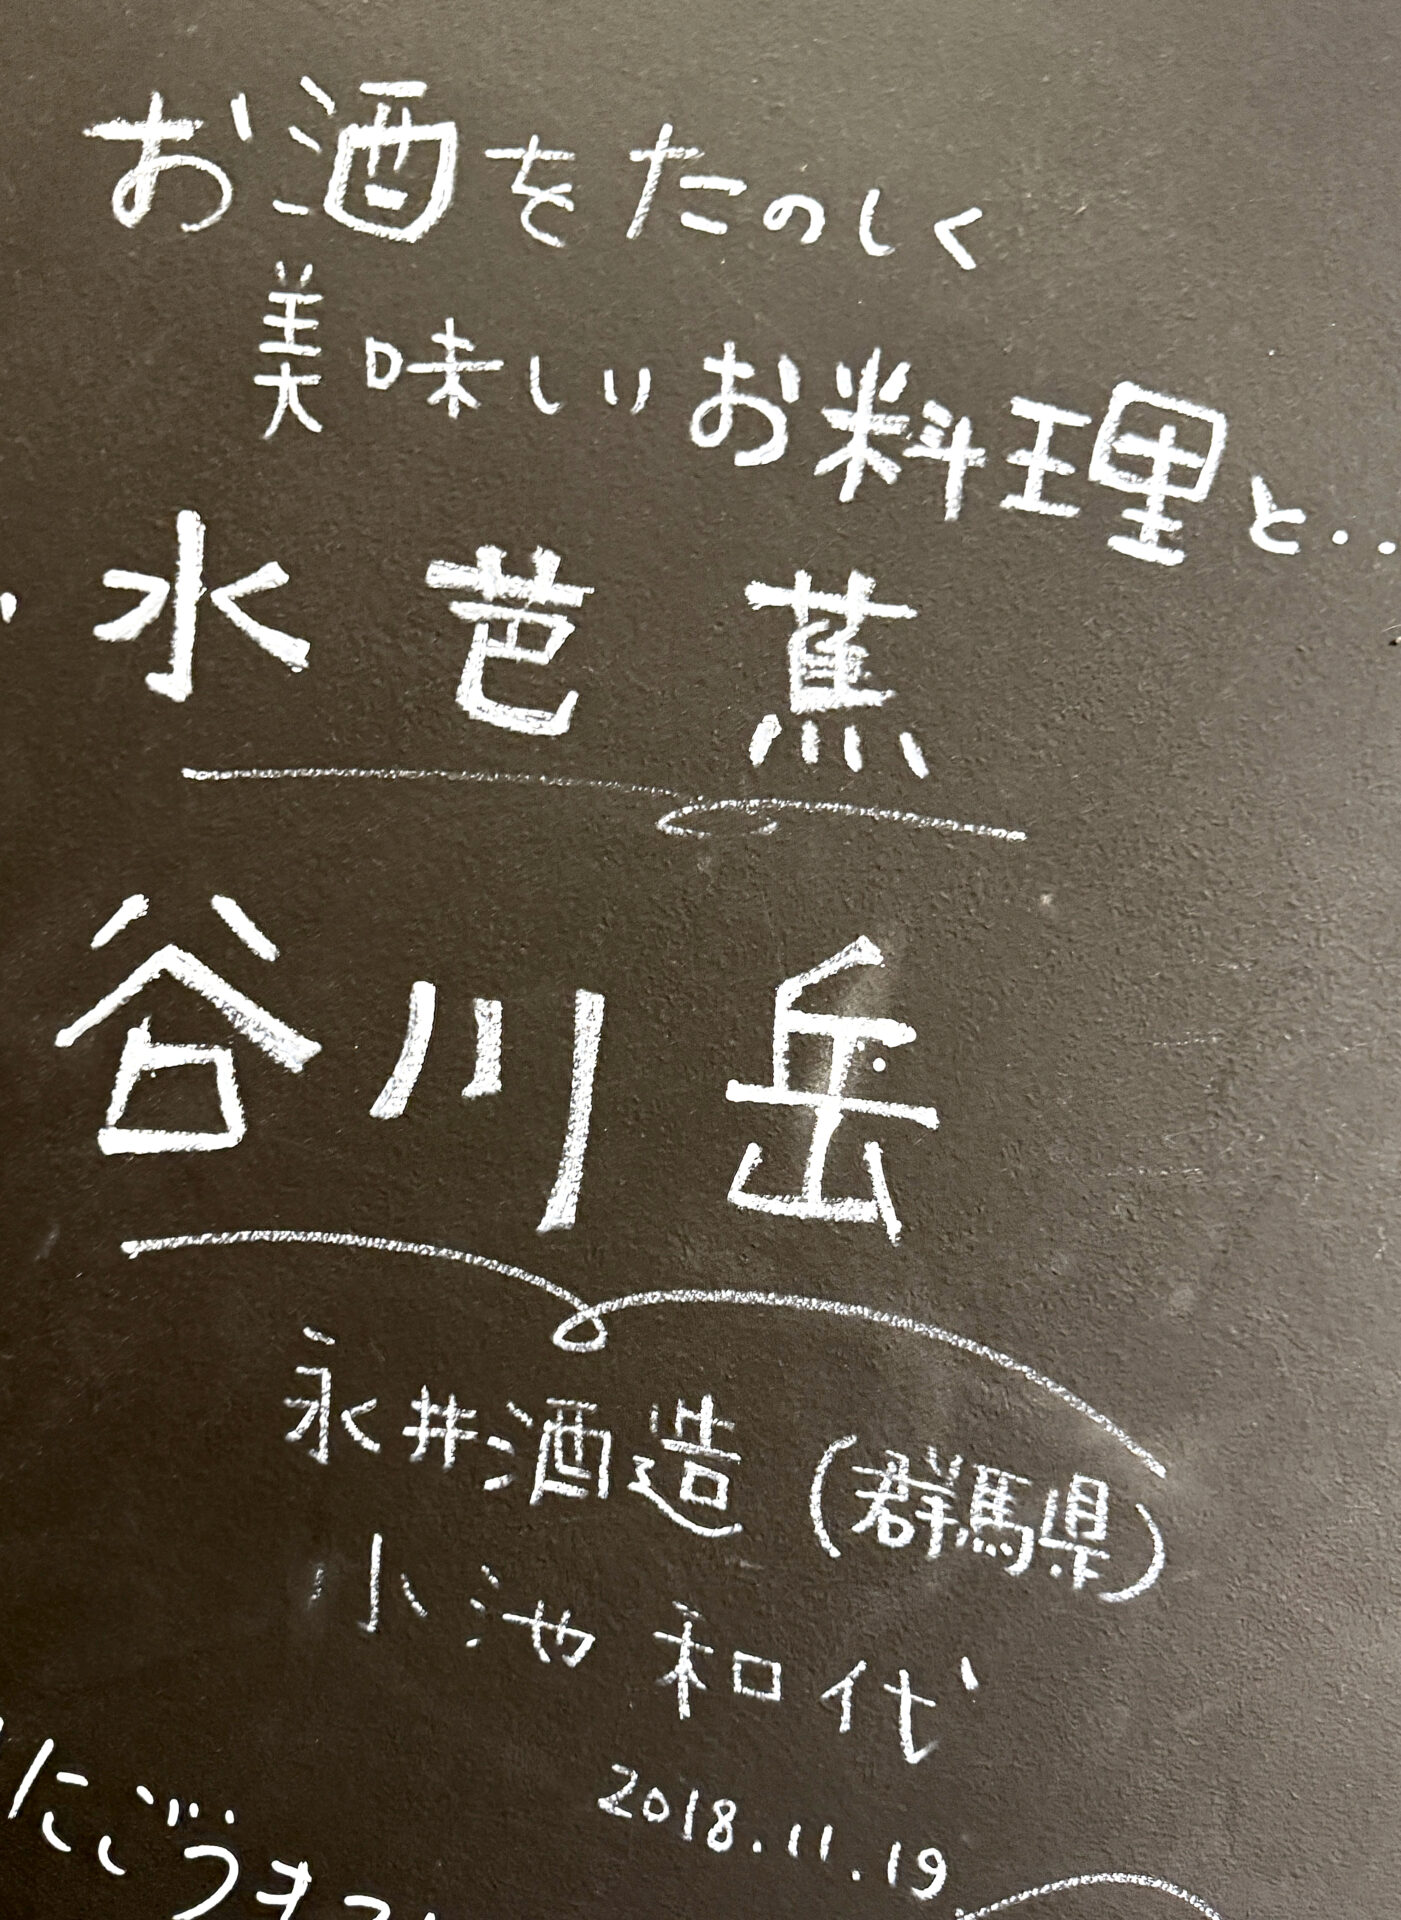 お酒をたのしく
美味しいお料理と‥
水芭蕉
谷川岳
永井酒造(群馬県)
小池和代
2018.11.19
にごう